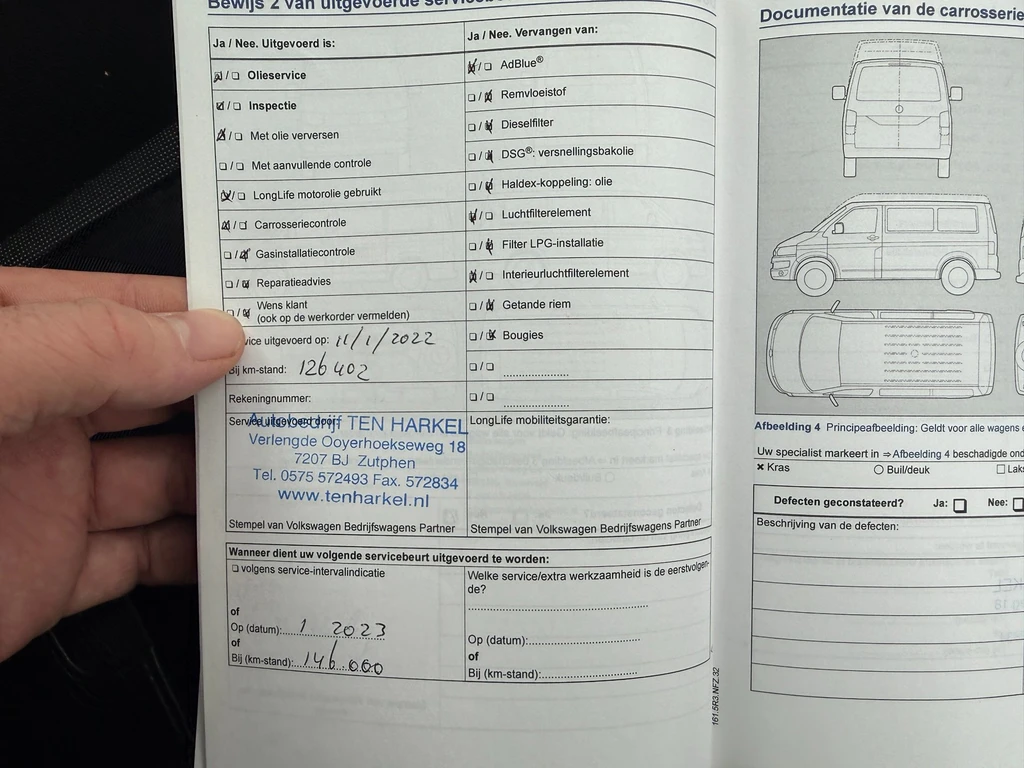 Bewijs 2 van uitgevoerde
Ja / Nee. Uitgevoerd is:
Olieservice
Inspectie
Met olie verversen
Met aanvullende controle
LongLife motorolie gebruikt
Carrosseriecontrole
Gasinstallatiecontrole
Reparatieadvies
Wens klant
(ook op de werkorder vermelden)
uitgevoerd op: 11/1/2022
Bij km-stand: 126402
Rekeningnummer:
Service uitgevoerd door:
Autobedrijf TEN HARKEL
Verlengde Ooyerhoekseweg 18
7207 BJ Zutphen
Tel. 0575 572493 Fax. 572834
www.tenharkel.nl
Stempel van Volkswagen Bedrijfswagens Partner
Ja / Nee. Vervangen van:
AdBlue®
Remvloeistof
Dieselfilter
DSG®: versnellingsbakolie
Haldex-koppeling: olie
Luchtfilterelement
Filter LPG-installatie
Interieurluchtfilterelement
Getande riem
Bougies
LongLife mobiliteitsgarantie:
Stempel van Volkswagen Bedrijfswagens Partner
Wanneer dient uw volgende servicebeurt uitgevoerd te worden:
volgens service-intervalindicatie
of
Op (datum): 1 2023
of
Bij (km-stand): 146.000
Welke service/extra werkzaamheid is de eerstvolgen-
de?
Op (datum):
of
Bij (km-stand):
161.5R3.NFZ.32
Documentatie van de carrosserie
Afbeelding 4 Principeafbeelding: Geldt voor alle wagens
Uw specialist markeert in ⇒ Afbeelding 4 beschadigde
Kras
Buil/deuk
Defecten geconstateerd? Ja: Nee:
Beschrijving van de defecten: